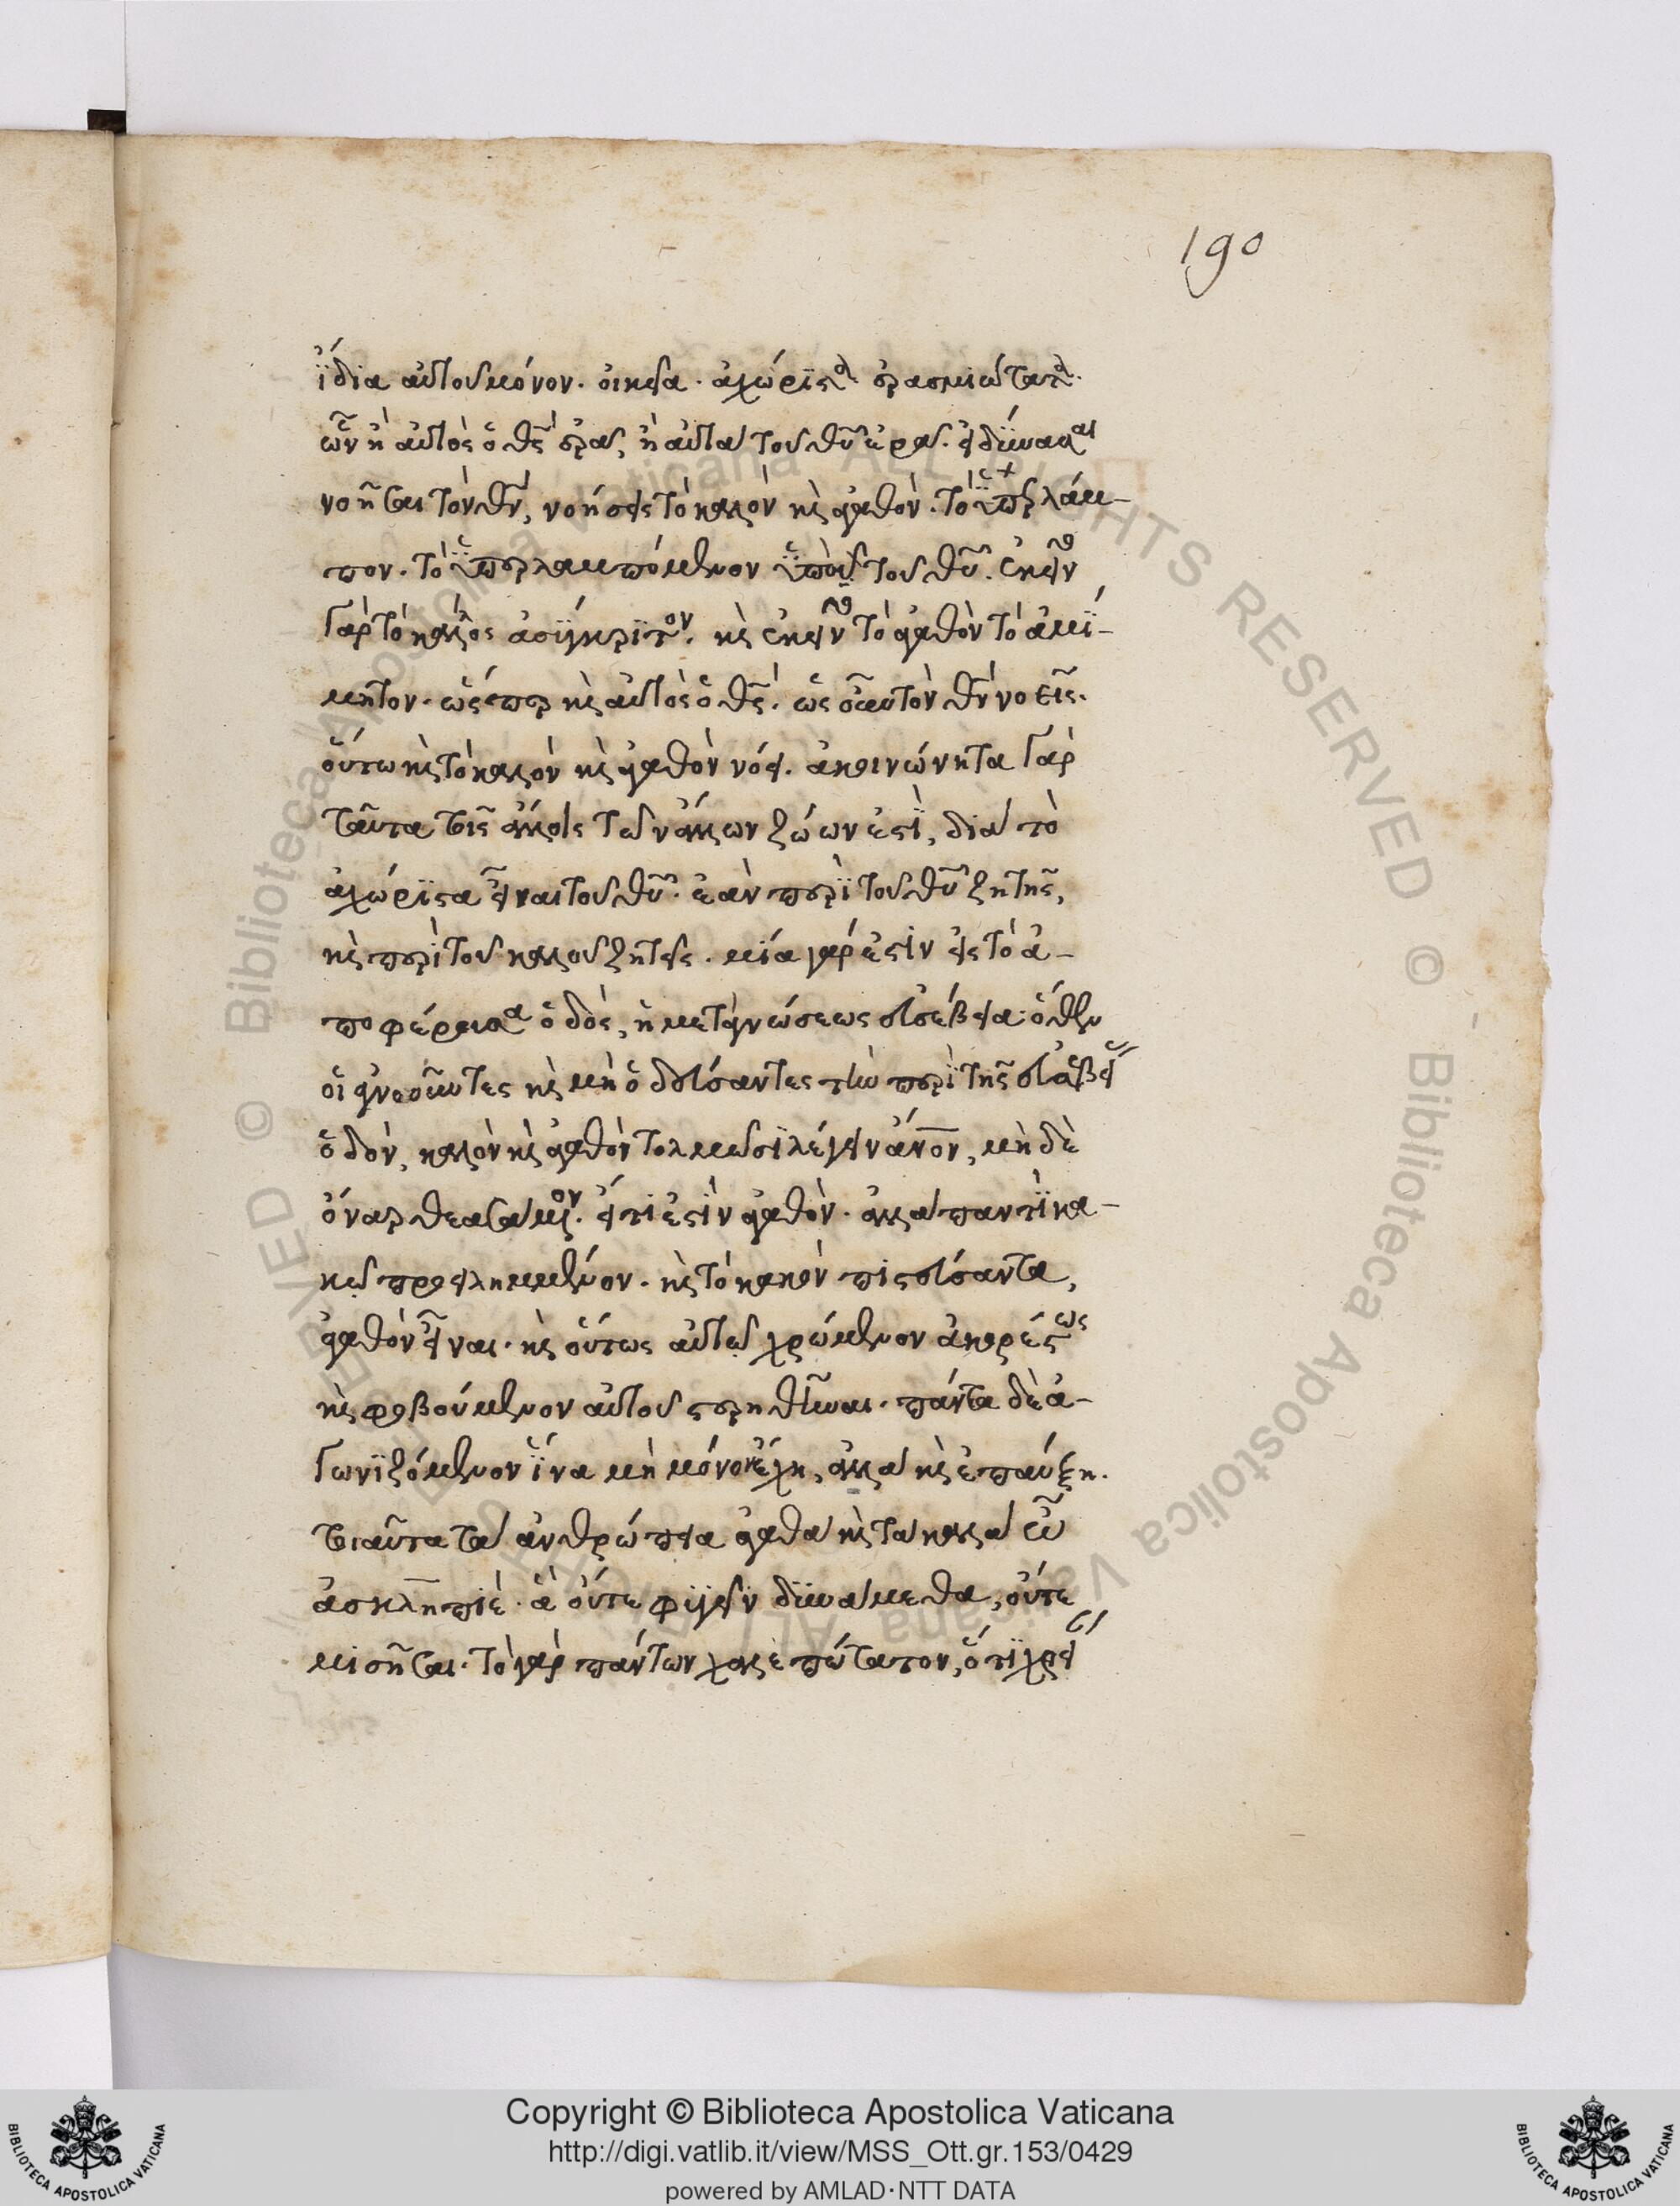 190
ἴδια αὐτοῦ μόνον. οἰκεῖα. ἀχώριστα ἐρασμιώτατα.
ὧν ἢ αὐτὸς ὁ θς ἐρᾶ, ἢ αὐτὰ τοῦ θῦ ἐρᾶ. εἰ δύνασαι
νοῆσαι τὸν θν, νοήσεις τὸ καλὸν κὶ ἀγαθὸν. τὸ ὑπερλάμ-
πον. τὸ ὑπερλαμπόμενον ὑπὸ τοῦ θῦ. ἐκεῖνο
γὰρ τὸ κάλλος ἀσύγκριτον. κὶ ἐκεῖνο τὸ ἀγαθὸν τὸ ἀμί-
μητον. ὥσπερ κὶ αὐτὸς ὁ θς. ὡς οὖν τὸν θν νοεῖς.
οὕτω κὶ τὸ καλὸν κὶ ἀγαθὸν νόει. ἀκοινώνητα γὰρ
ταῦτα τοῖς ἄλλοις τῶν ἄλλων ζώων ἐστὶ, διὰ τὸ
ἀχώριστα εἶναι τοῦ θῦ. ἐὰν περὶ τοῦ θῦ ζητῆς,
κὶ περὶ τοῦ καλοῦ ζητεῖς. μία γάρ ἐστιν εἰς τὸ ἀ-
ποφέρουσα ὁδὸς, ἡ μετὰ γνώσεως εὐσέβεια. ὅθεν
οἱ ἀγνοοῦντες κὶ μὴ ὁδεύσαντες τὴν περὶ τῆς εὐσεβεί
ὁδὸν, καλὸν κὶ ἀγαθὸν τολμῶσι λέγειν ἄνον, μὴ δὲ
ὄναρ θεασάμενον. εἴ τι ἐστὶν ἀγαθὸν. ἀλλὰ παντὶ κα-
κῶ προειλημμένον. κὶ τὸ κακὸν πιστεύσαντα,
ἀγαθὸν εἶναι. κὶ οὕτως αὐτῶ χρώμενον ἀκορέστως
κὶ φοβούμενον αὐτοῦ στερηθῆναι. πάντα δὲ ἀ-
γωνιζόμενον ἵνα μὴ μόνον ἔχη, ἀλλὰ κὶ ἐπαύξη.
τοιαῦτα τὰ ἀνθρώπεια ἀγαθὰ κὶ τὰ καλὰ ὦ
ἀσκληπιὲ. ἃ οὔτε φυγεῖν δυνάμεθα, οὔτε
μισῆσαι. τὸ γὰρ πάντων χαλεπώτατον, ὅτι χρεί
Copyright © Biblioteca Apostolica Vaticana
http://digi.vatlib.it/view/MSS_Ott.gr.153/0429
powered by AMLAD·NTT DATA
BIBLIOTECA APOSTOLICA VATICANA
BIBLIOTECA APOSTOLICA VATICANA